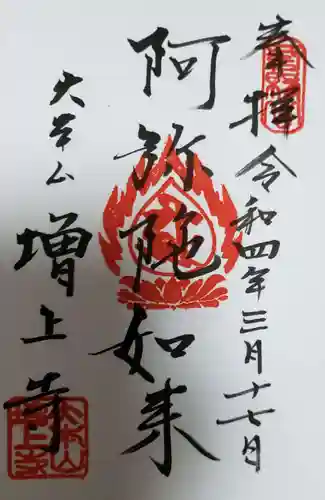 奉拝 令和四年三月十七日
阿弥陀如来
大本山
増上寺